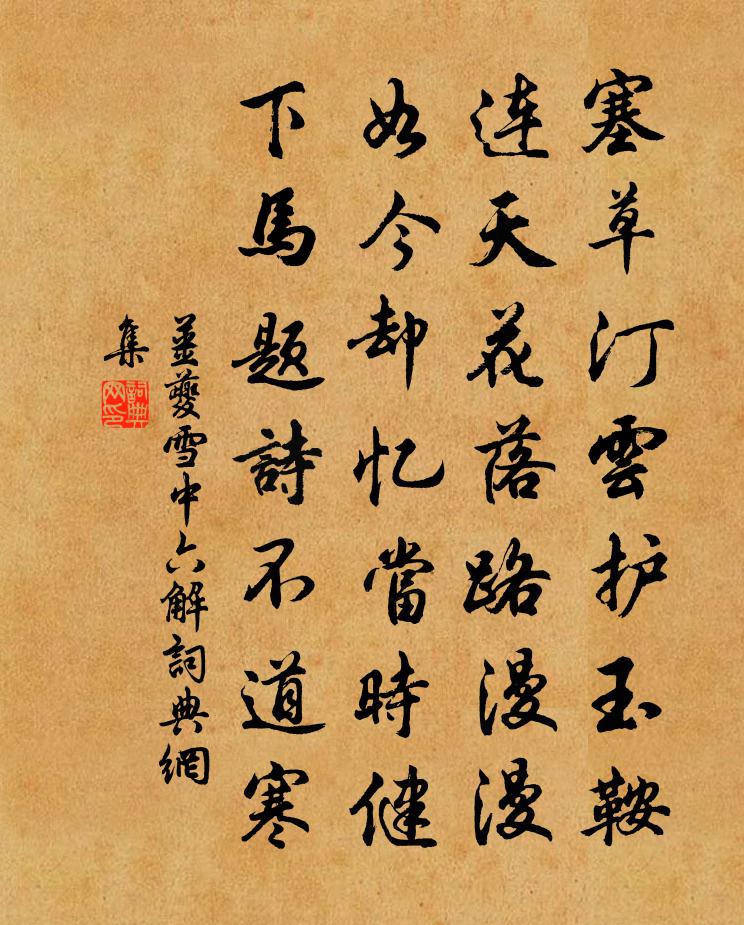 塞草汀雲护玉鞍
连天花落路漫漫
如今却忆當時健
下馬题詩不道寒
姜夔雪中六解詞典網
集
詞典网印